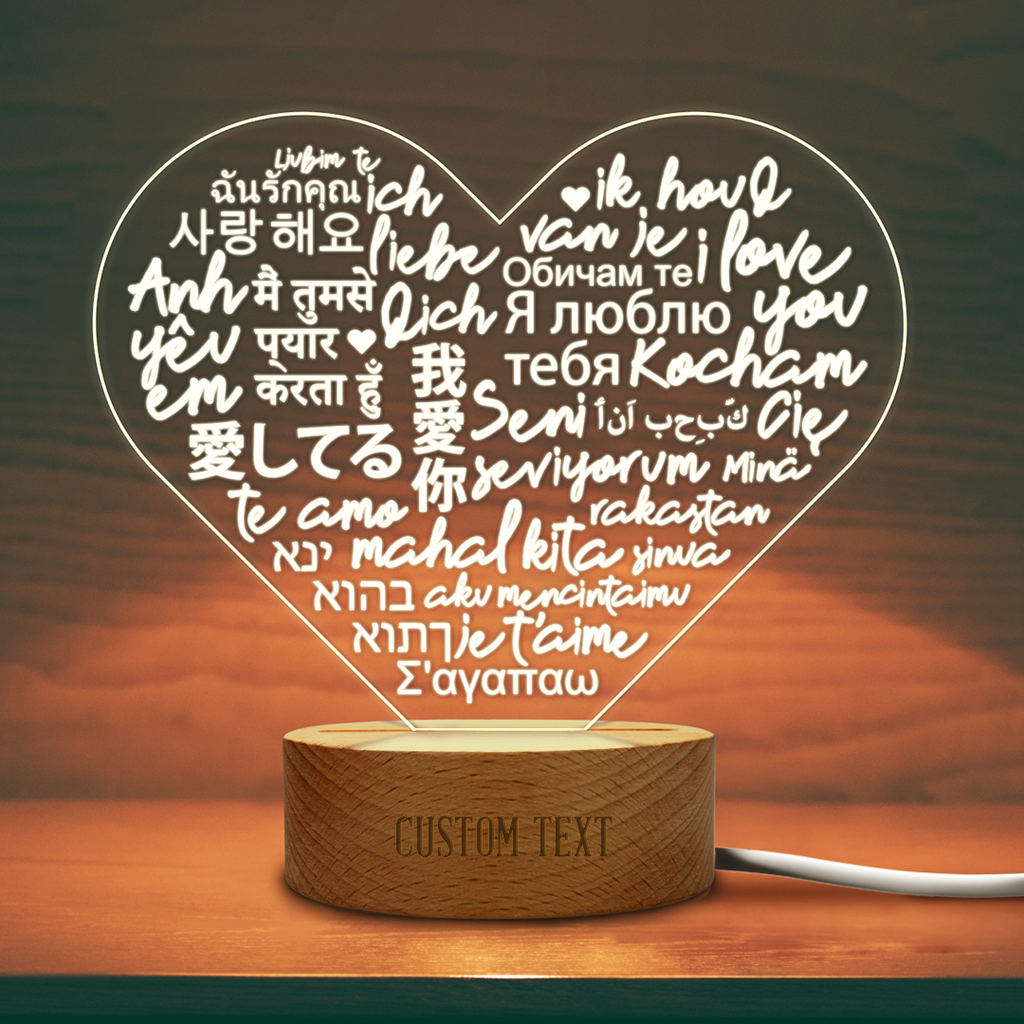 Ljubim te
ฉันรักคุณ
사랑해요
ich
liebe
Dich
Anh
yêu
em
मै तुमसे
प्यार ♥
करता हुँ
愛してる
我
愛
你
♥ ik hou
van je
Обичам те
i love
you
Я люблю
тебя
Kocham
Cię
Seni
seviyorum
Minä
rakastan
sinua
te amo
mahal kita
ינא
בהוא
ךתוא
aku mencintaimu
je t'aime
Σ'αγαπαω
CUSTOM TEXT